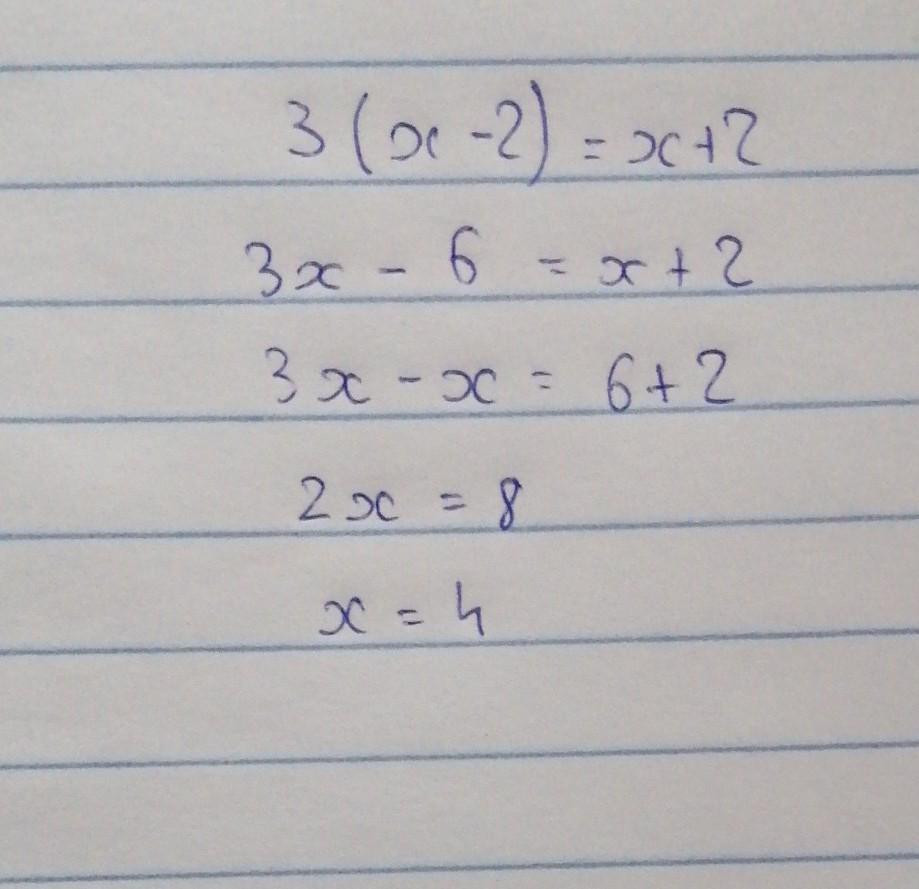 3(x-2) = x+2
3x - 6 = x+2
3x - x = 6+2
2x = 8
x = 4